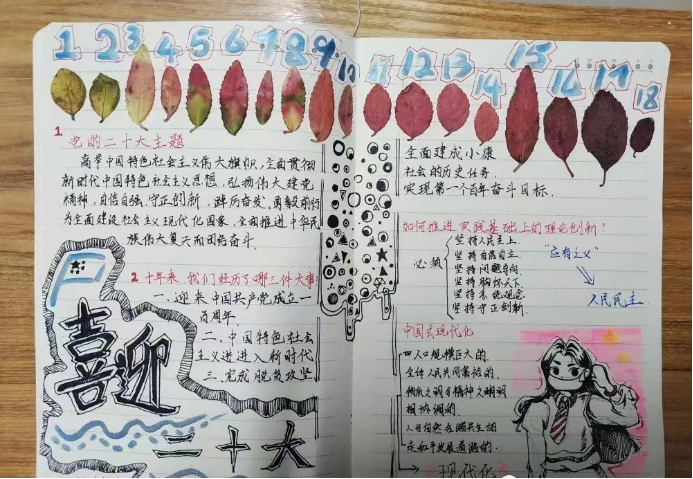 1 2 3 4 5 6 7 8 9 10 11 12 13 14 15 16 17 18
1 党的二十大主题
高举中国特色社会主义伟大旗帜,全面贯彻
新时代中国特色社会主义思想,弘扬伟大建党
精神,自信自强、守正创新,踔厉奋发、勇毅前行
为全面建设社会主义现代化国家、全面推进中华民
族伟大复兴而团结奋斗.
2 十年来,我们经历了哪三件大事
一.迎来中国共产党成立一
百周年.
二.中国特色社会
主义进进入新时代
三.完成脱贫攻坚
喜迎
二十大
全面建成小康
社会的历史任务.
实现第一个百年奋斗目标.
如何推进实践基础上的理论创新?
必须
坚持人民至上.
坚持自信自立.
坚持问题导向.
坚持胸怀天下
坚持系统观念
坚持守正创新.
"应有之义"
人民民主.
中国式现代化
四人口规模巨大的.
全体人民共同富裕的.
物质文明
精神文明
相协调的
人与自然和谐共生的
走和平发展道路的.
现代化